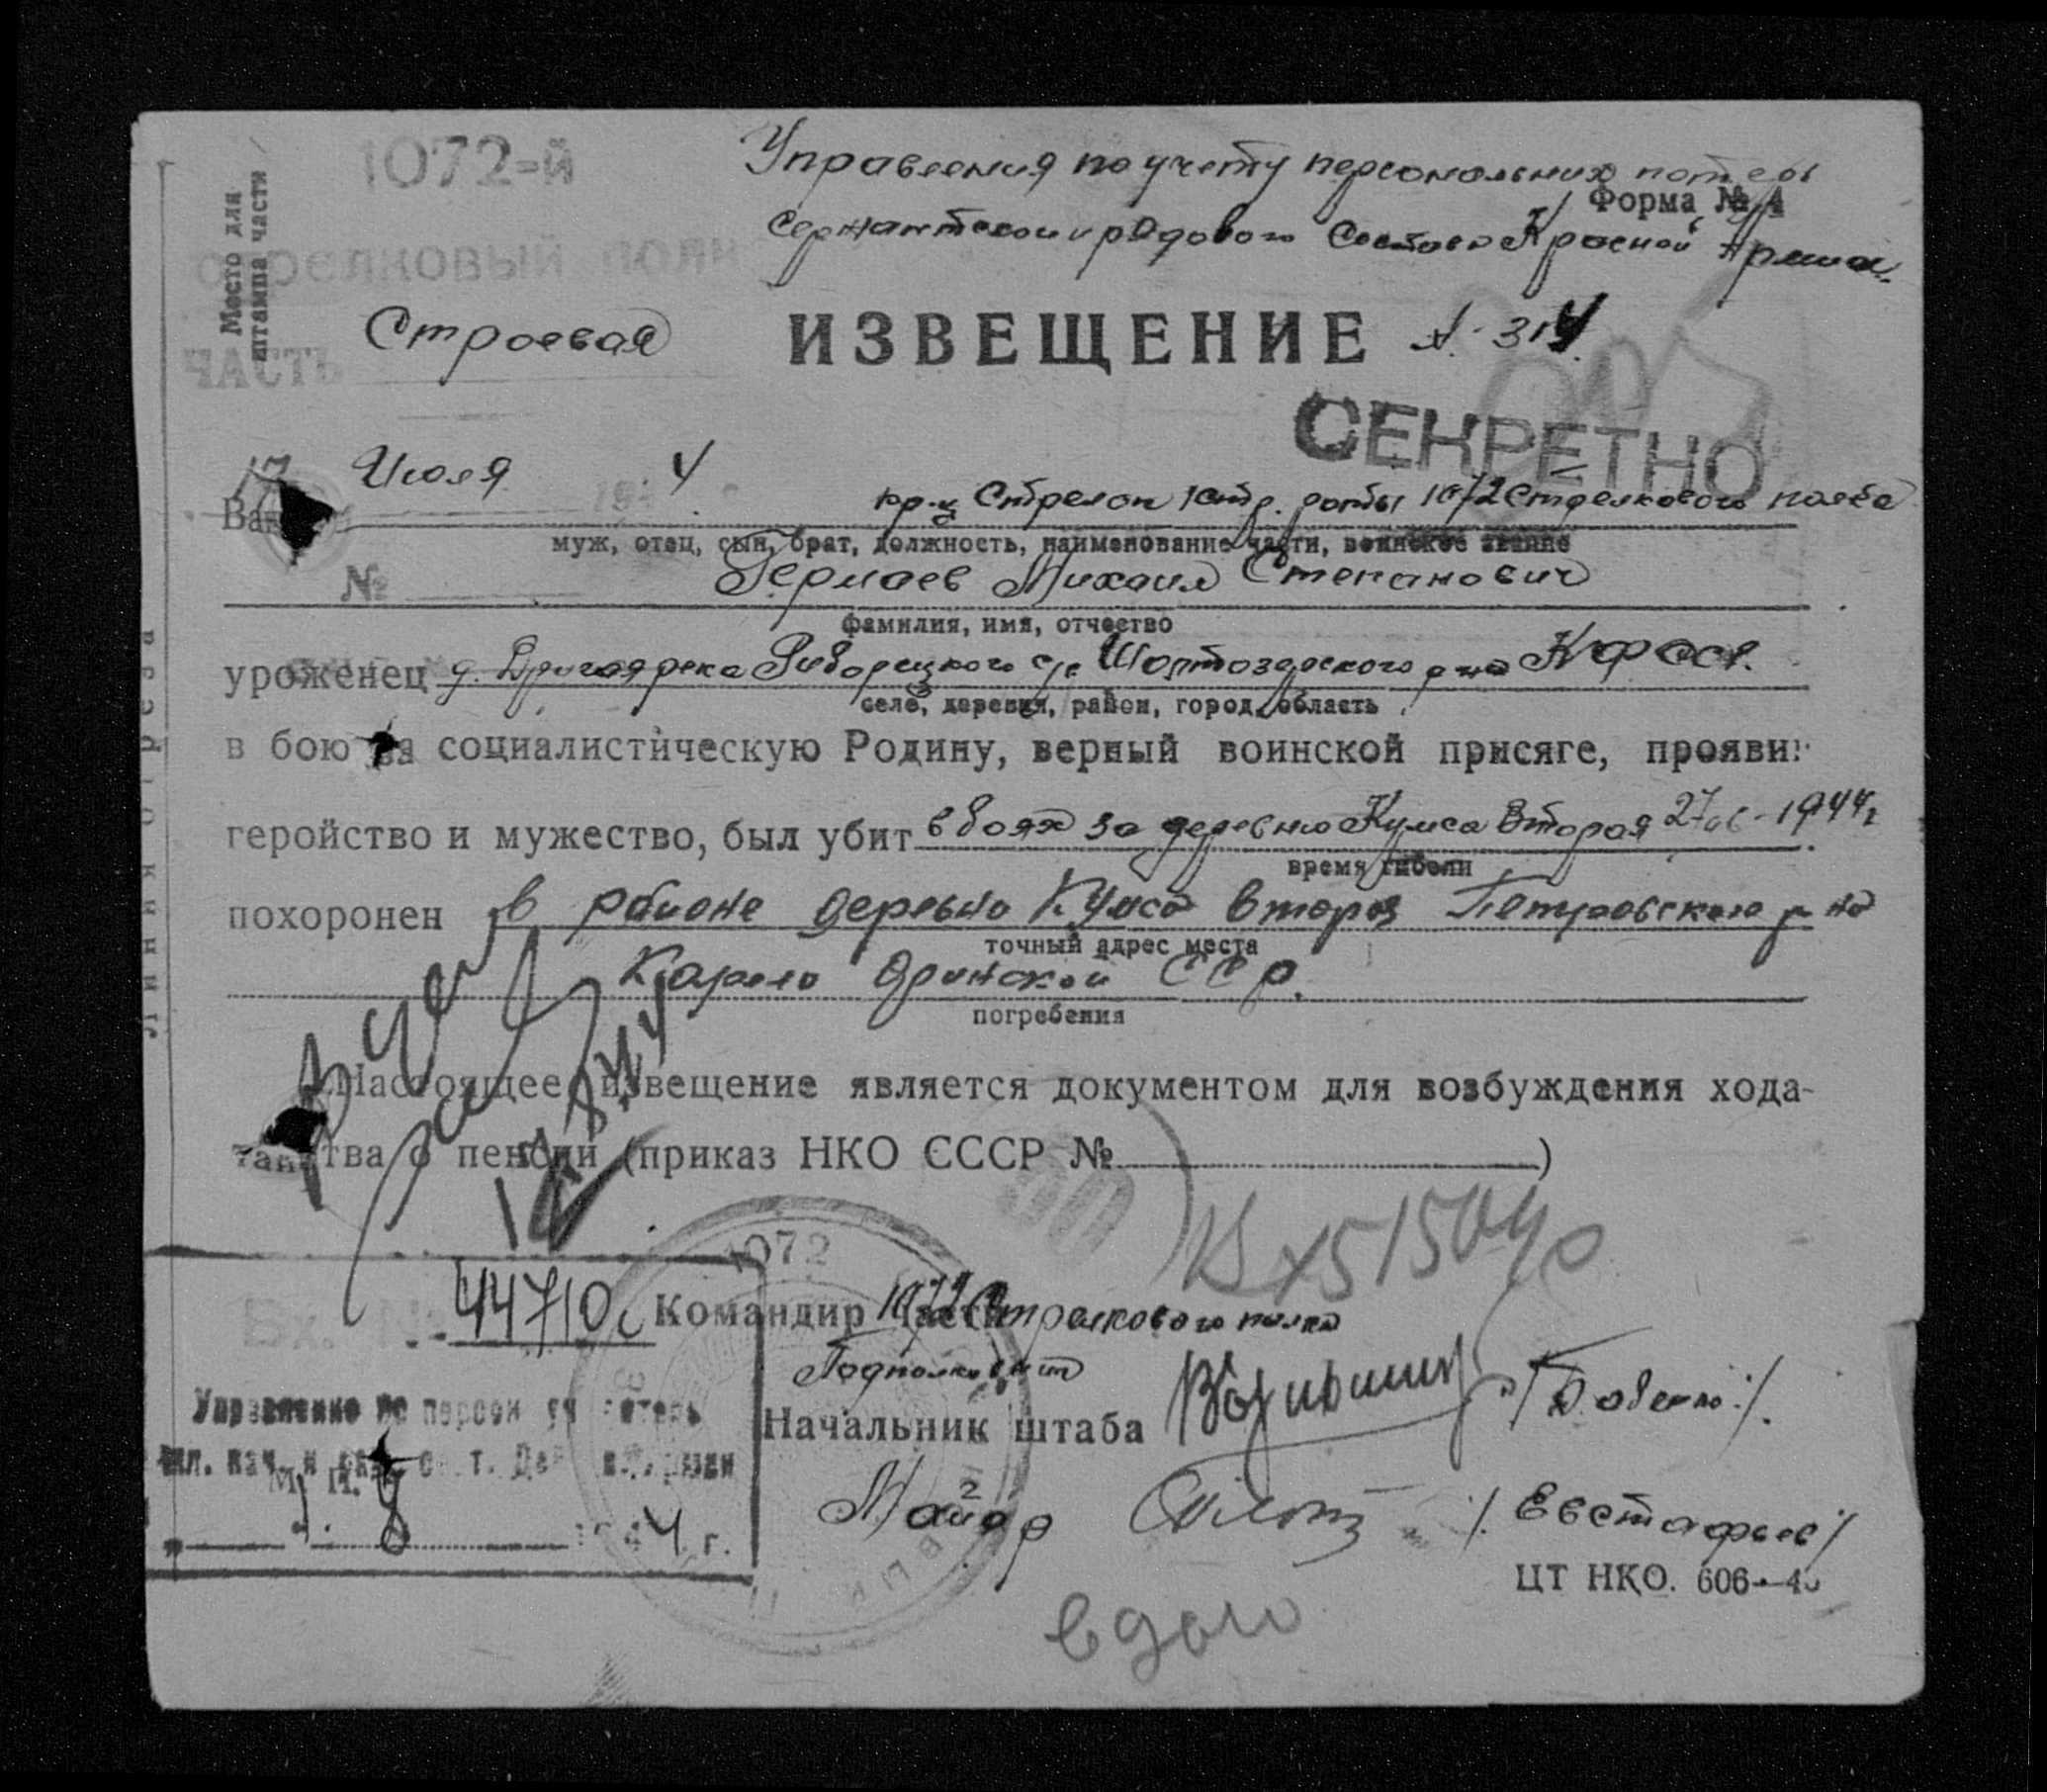 1072-й
Управления по учету персональных потерь
Форма № 4
сержантского и рядового состава Красной Армии.
Место для
штампа части
стрелковый полк
ЧАСТЬ Строевая
ИЗВЕЩЕНИЕ №. 314
СЕКРЕТНО
17 Июля 194 4
Ваш кр-ц Стрелок 1 стр. роты 1072 Стрелкового полка
муж, отец, сын, брат, должность, наименование части, воинское звание
№ Гермаев Михаил Степанович
фамилия, имя, отчество
уроженец д. река Реборецкого с/с р-на КФССР.
село, деревня, район, город, область
в бою за социалистическую Родину, верный воинской присяге, прояви
геройство и мужество, был убит в боях за деревню Кумса Вторая 27.06-1944г
время гибели
похоронен в районе деревно Кумса вторая Петровского р-на
точный адрес места
Карело Финской ССР.
погребения
Линия отреза
Настоящее извещение является документом для возбуждения хода-
тайства о пенсии (приказ НКО СССР № )
1072
Вх. № 44710с
Командир части 1072 Стрелкового полка
Подполковник
Управление по персон уч потерь
Начальник штаба
М. П.
1. 8 1944 г.
Майор / Евстафьев /
ЦТ НКО. 606—4
вдою